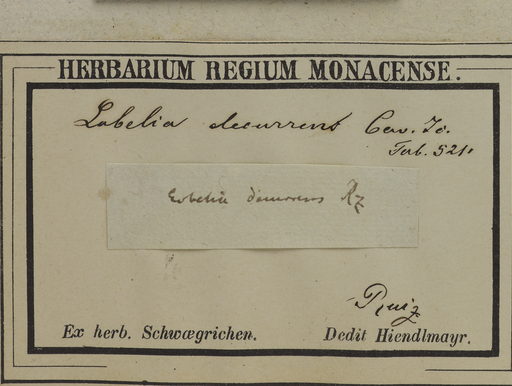 HERBARIUM REGIUM MONACENSE.
Lobelia decurrens Cav. Ic.
Tab. 521.
Lobelia decurrens Rz
Ruiz
Ex herb. Schwægrichen. Dedit Hiendlmayr.